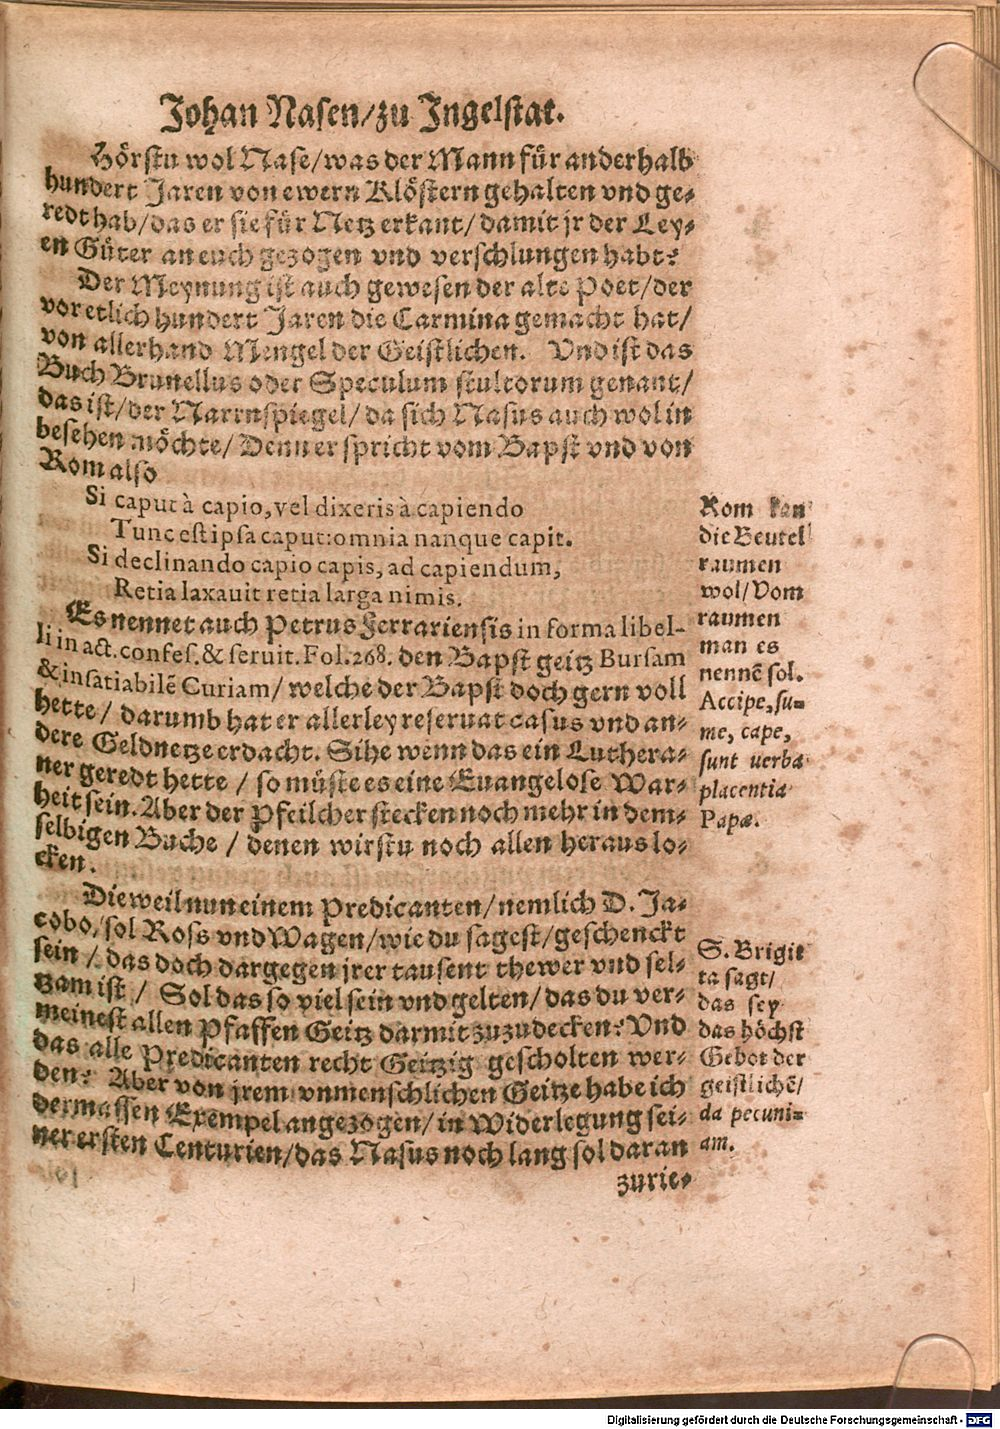 Johan Nasen/zu Ingelstat.
Hörstu wol Nase/was der Mann für anderhalb
hundert Jaren von ewern Klöstern gehalten vnd ge-
redt hab/das er sie für Netz erkant/damit jr der Ley-
en Güter an euch gezogen vnd verschlungen habt?
Der Meynung ist auch gewesen der alte Poet/der
vor etlich hundert Jaren die Carmina gemacht hat/
von allerhand Mengel der Geistlichen. Vnd ist das
Buch Brunellus oder Speculum stultorum genant/
das ist/der Narrnspiegel/da sich Nasus auch wol in
besehen möchte/Denn er spricht vom Bapst vnd von
Rom also
Si caput à capio, vel dixeris à capiendo
Tunc est ipsa caput: omnia nanque capit.
Si declinando capio capis, ad capiendum,
Retia laxauit retia larga nimis.
Es nennet auch Petrus Ferrariensis in forma libel-
li in act. confes. & seruit. Fol. 268. den Bapst geitz Bursam
& insatiabilē Curiam/welche der Bapst doch gern voll
hette/darumb hat er allerley reseruat casus vnd an-
dere Geldnetze erdacht. Sihe wenn das ein Luthera-
ner geredt hette/so müste es eine Euangelose War-
heit sein. Aber der Pfeilcher stecken noch mehr in dem-
selbigen Buche/denen wirstu noch allen heraus lo-
cken.
Dieweil nun einem Predicanten/nemlich D. Ja-
cobo/sol Ross vnd Wagen/wie du sagest/geschenckt
sein/das doch dargegen jrer tausent thewer vnd sel-
tzam ist/Sol das so viel sein vnd gelten/das du ver-
meinest allen Pfaffen Geitz darmit zuzudecken? Vnd
das alle Predicanten recht Geitzig gescholten wer-
den? Aber von jrem vnmenschlichen Geitze habe ich
dermassen Exempel angezogen/in Widerlegung sei-
ner ersten Centurien/das Nasus noch lang sol daran
zurie-
Rom kan
die Beutel
raumen
wol/Vom
raumen
man es
nennē sol.
Accipe, su-
me, cape,
sunt uerba
placentia
Papæ.
S. Brigit
ta sagt/
das sey
das höchst
Gebot der
geistlichē/
da pecuni-
am.
Digitalisierung gefördert durch die Deutsche Forschungsgemeinschaft - DFG